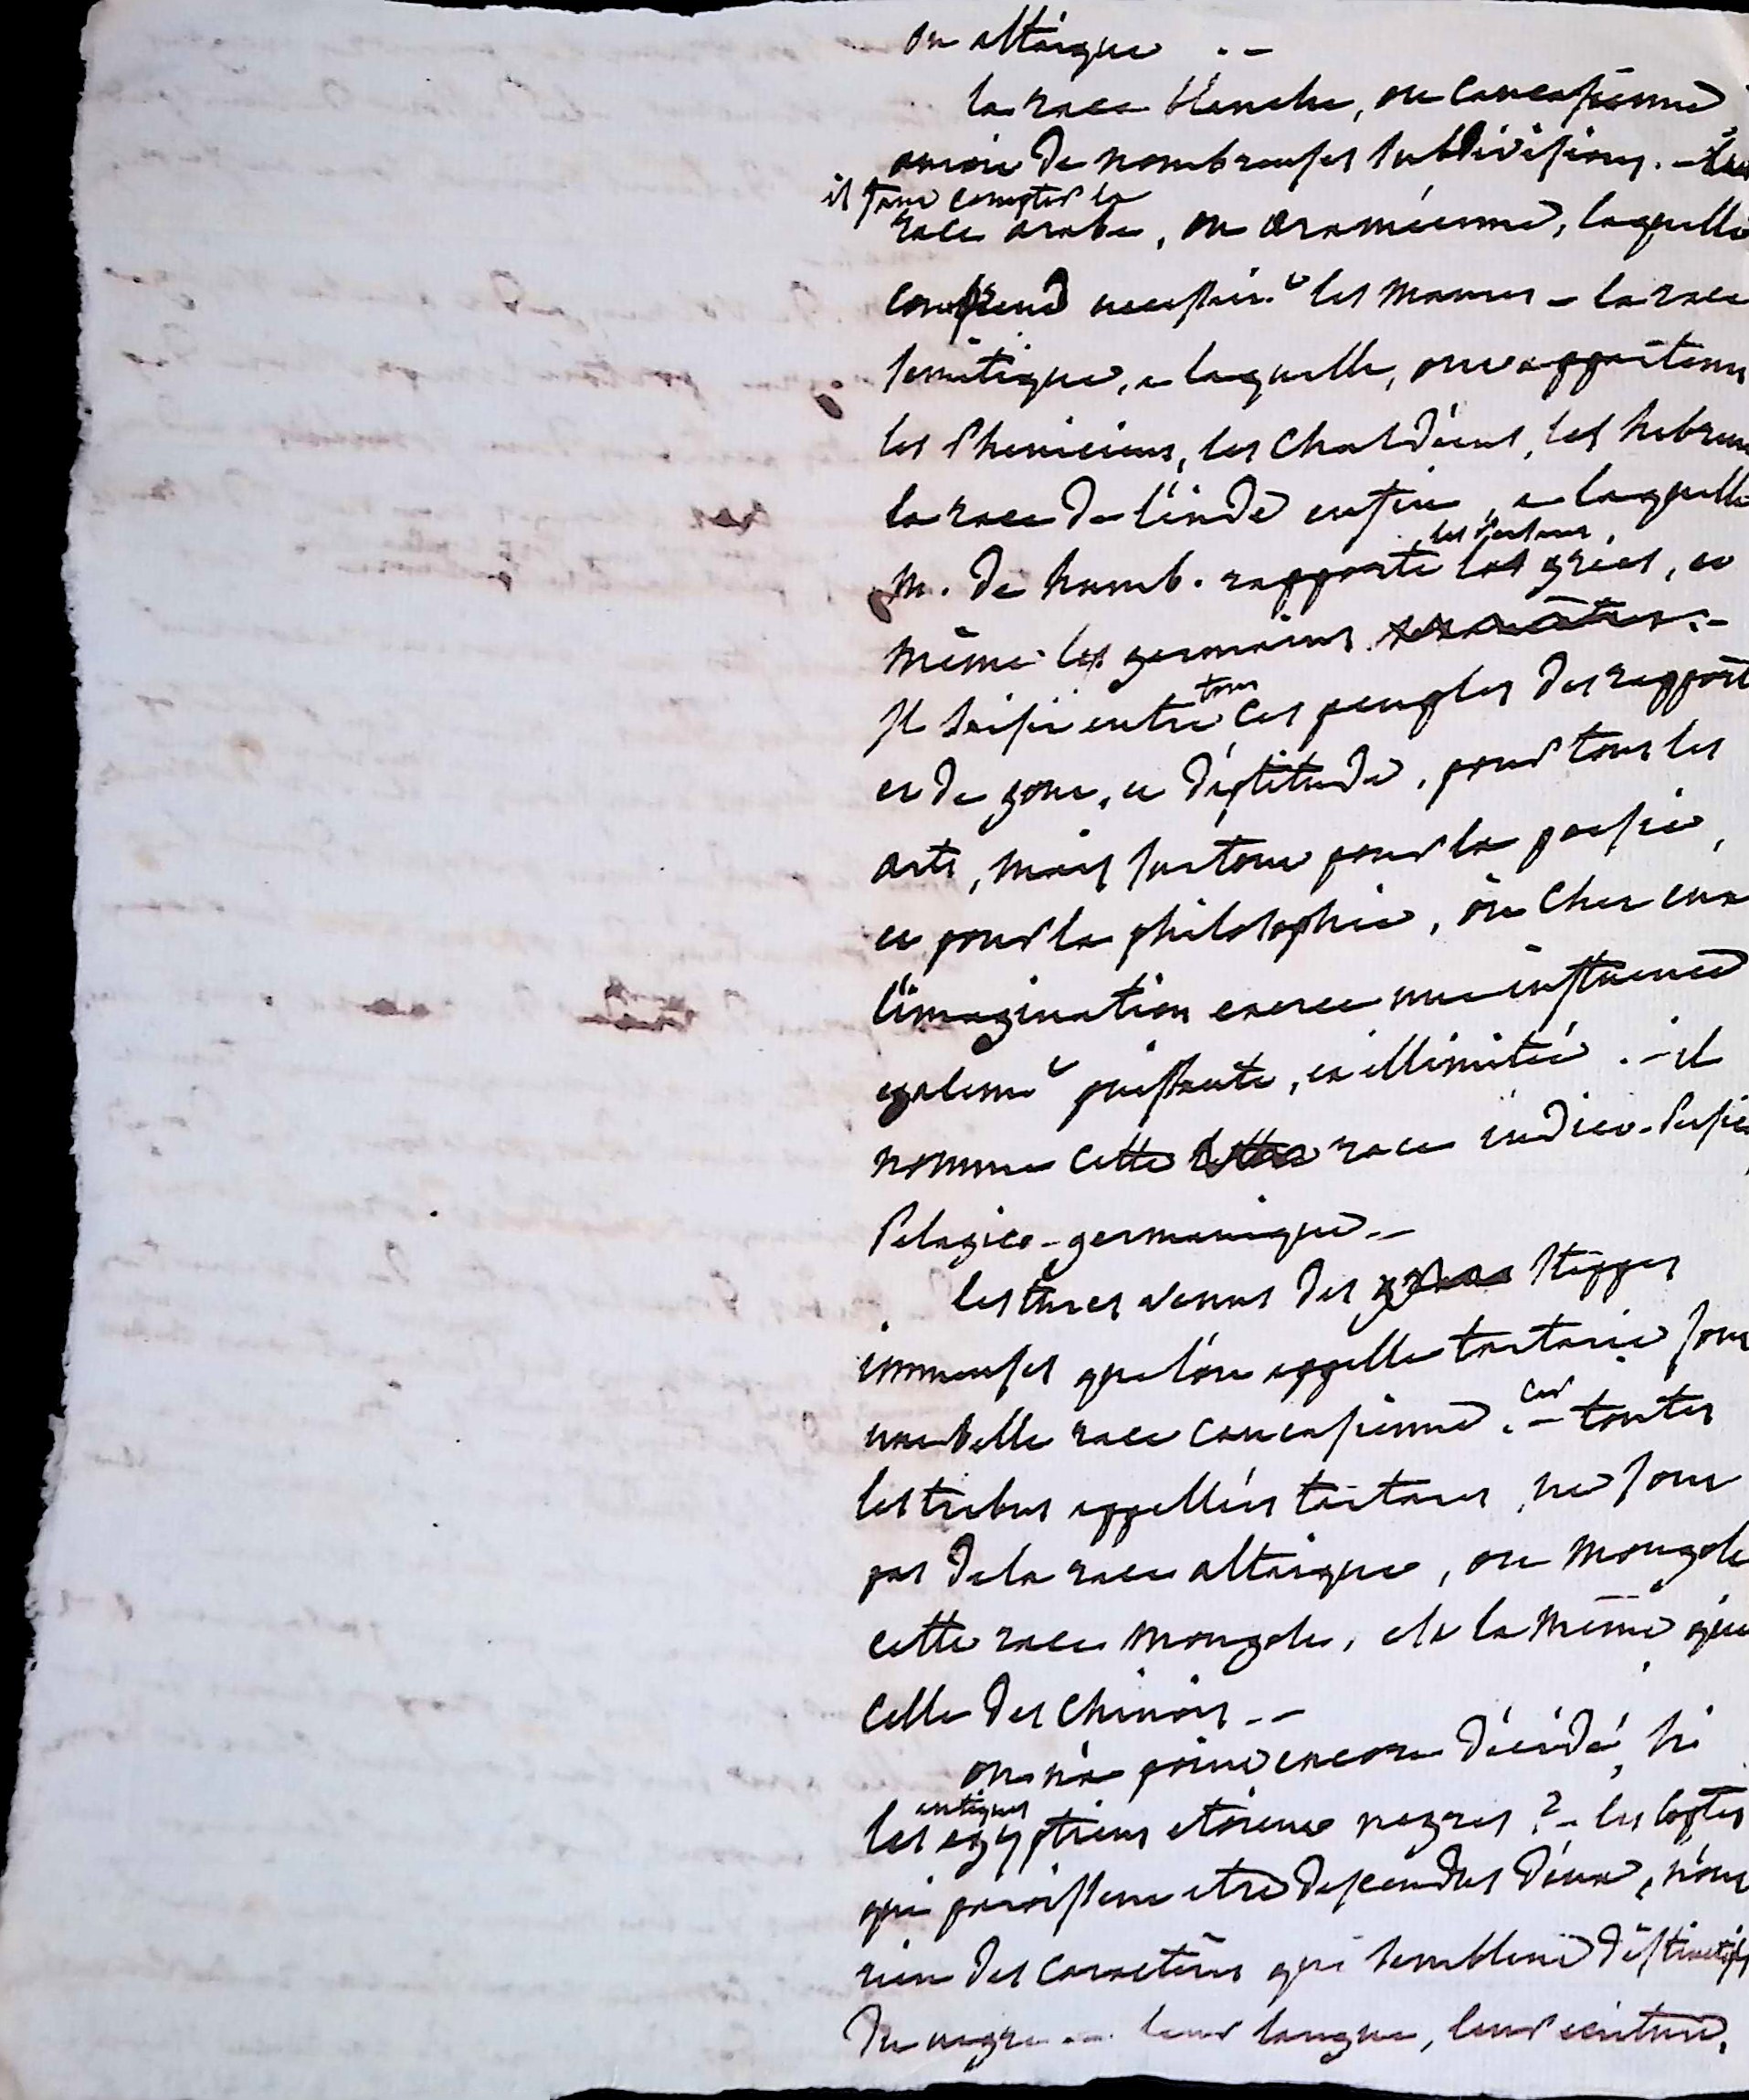 ou altaïque. –
la race blanche, ou caucasienne
amoin de nombreuses subdivisions. –
il faut compter la
race arabe, ou araméenne, laquelle
comprend necessair.t les maures – la race
semitique, a laquelle, ont appartenu
les Pheniciens, les Chaldéens, les hebreux
la race de l'inde enfin, a laquelle
les Persans,
m. de humb. rapporte les grecs, et
même les germains
tous
Il saisit entre ces peuples des rapports
et de gout, et d'aptitude, pour tous les
arts, mais surtout pour la poesie,
et pour la philosophie, ou chez eux
l'imagination exerce une influence
egalem.t puissante, et illimitée. – il
nomme cette race indico-Persico
Pelagico-germanique –
les turcs venus des steppes
immenses que l'on appelle tartarie sont
une belle race caucasienne. car – toutes
les tribus appellées tartares, ne sont
pas de la race altaïque, ou mongole
cette race mongole, est la même que
celle des chinois. –
on n'a point encore décidé, si
antiques
les egyptiens etoient negres? – les coptes
qui paroissent etre descendus d'eux, n'ont
rien des caracteres qui semblent distinctifs
du negre – leur langue, leur ecriture,